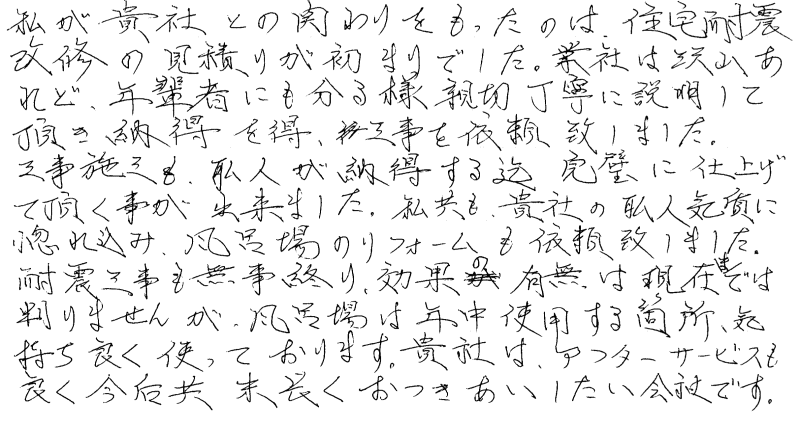 私が貴社との関わりをもったのは、住宅耐震
改修の見積りが初まりでした。業社は沢山あ
れど、年輩者にも分る様親切丁寧に説明して
頂き納得を得、工事を依頼致しました。
工事施工も、私人が納得する迄完璧に仕上げ
て頂く事が出来ました。私共も、貴社の私人気質に
惚れ込み、風呂場のリフォームも依頼致しました。
耐震工事も無事終り、効果の有無は現在までは
判りませんが、風呂場は年中使用する箇所、気
持ち良く使っております。貴社は、アフターサービスも
良く今后共末長くおつきあいしたい会社です。